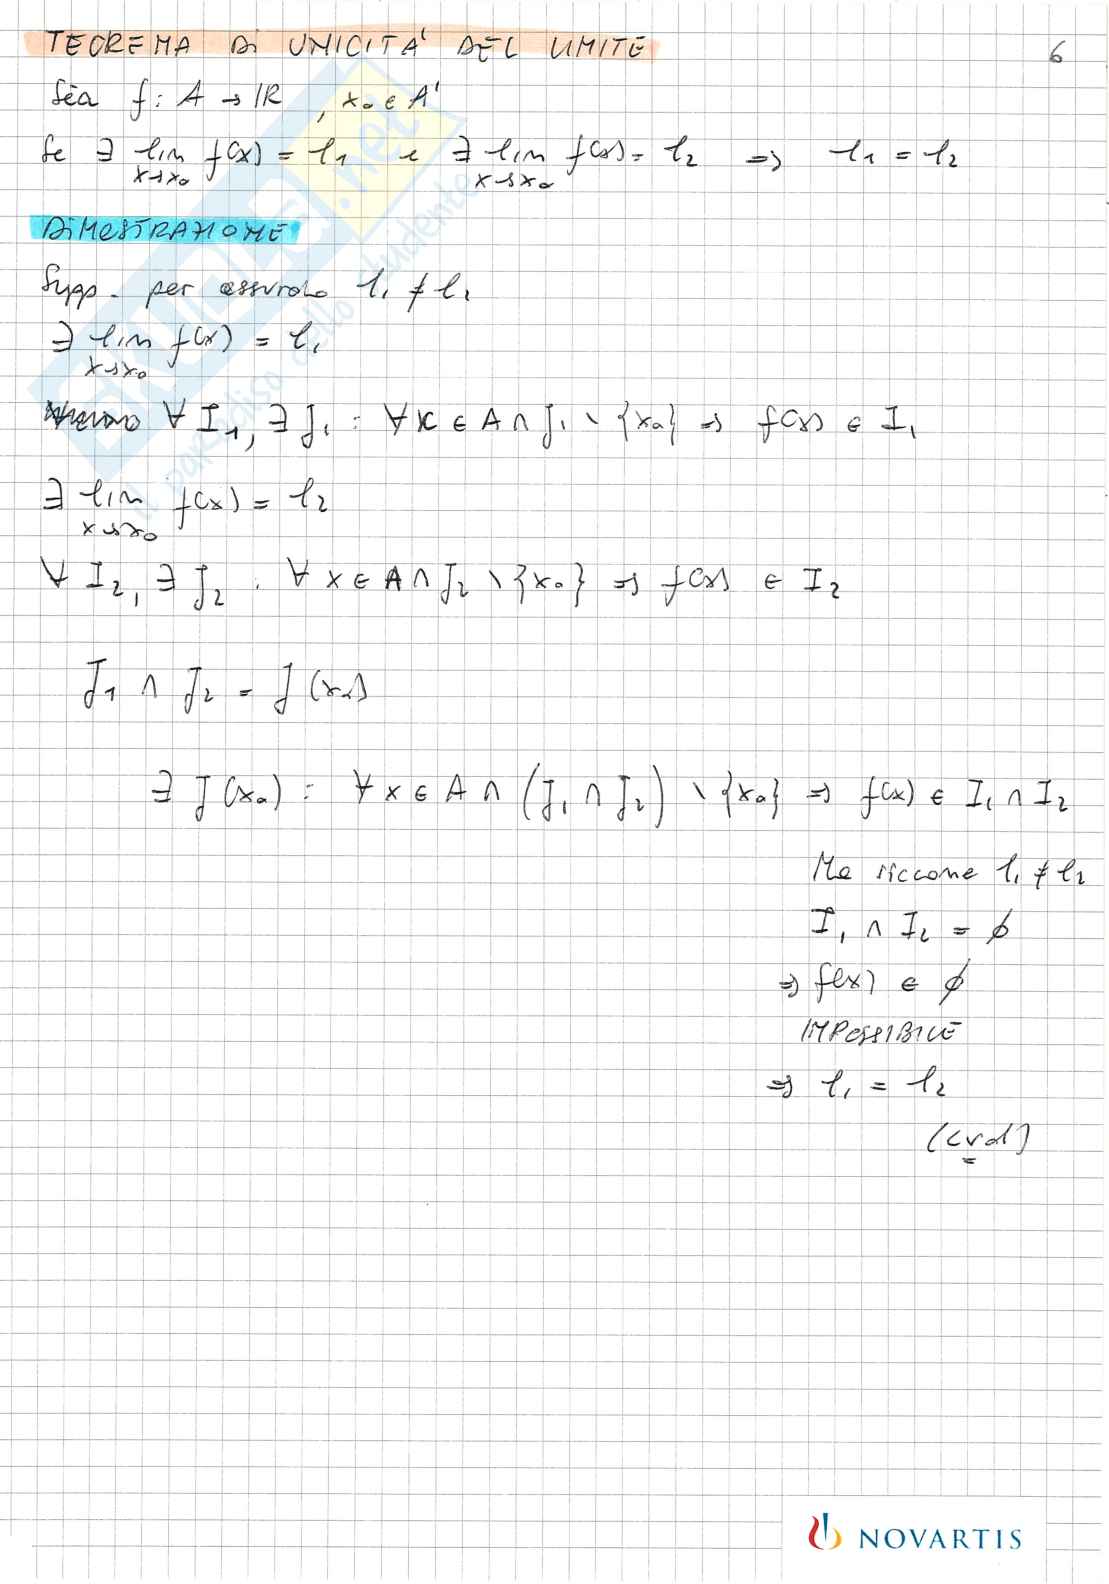 TEOREMA DI UNICITA' DEL LIMITE
6
Sia f: A → ℝ , x₀ ∈ A'
Se ∃ lim x→x₀ f(x) = l₁ e ∃ lim x→x₀ f(x) = l₂ ⇒ l₁ = l₂
DIMOSTRAZIONE
Supp. per assurdo l₁ ≠ l₂
∃ lim x→x₀ f(x) = l₁
∀ I₁, ∃ J₁ : ∀ x ∈ A ∩ J₁ \ {x₀} ⇒ f(x) ∈ I₁
∃ lim x→x₀ f(x) = l₂
∀ I₂, ∃ J₂ : ∀ x ∈ A ∩ J₂ \ {x₀} ⇒ f(x) ∈ I₂
J₁ ∩ J₂ = J (x₀)
∃ J (x₀) : ∀ x ∈ A ∩ (J₁ ∩ J₂) \ {x₀} ⇒ f(x) ∈ I₁ ∩ I₂
Ma siccome l₁ ≠ l₂
I₁ ∩ I₂ = ∅
⇒ f(x) ∈ ∅
IMPOSSIBILE
⇒ l₁ = l₂
(cvd)
SKUOLA.net
il paradiso dello studente
NOVARTIS